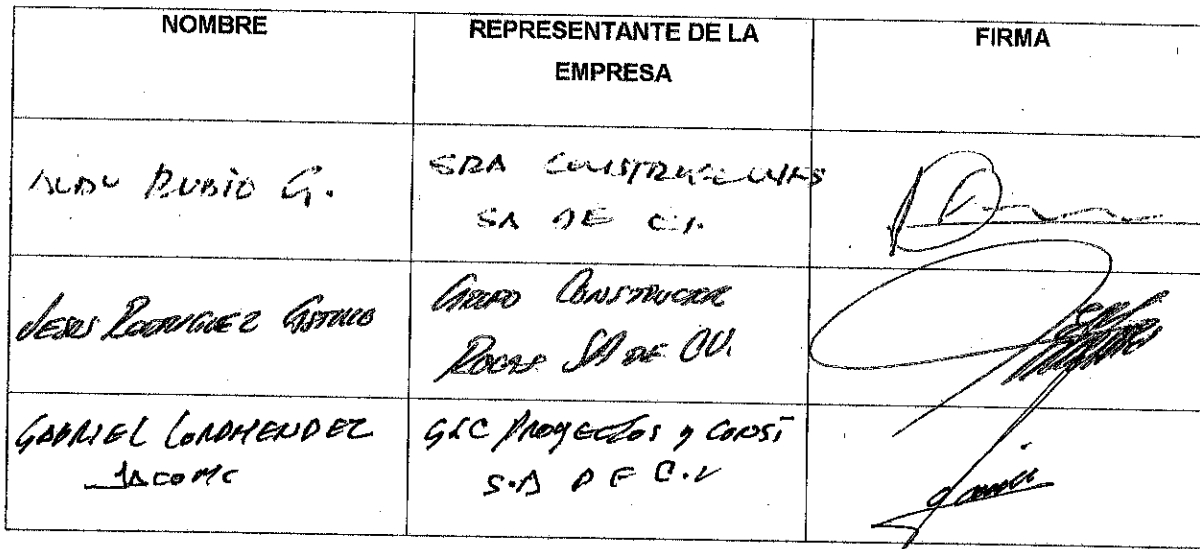 NOMBRE
REPRESENTANTE DE LA
EMPRESA
FIRMA
ALAN RUBIO G.
SRA CONSTRUCCIONES
SA DE C.V.
JESUS RODRIGUEZ CASTILLO
GRUPO CONSTRUCTOR
ROCAS SA DE CV.
GABRIEL
JACOME
GLC PROYECTOS y CONST
S.A DE C.V